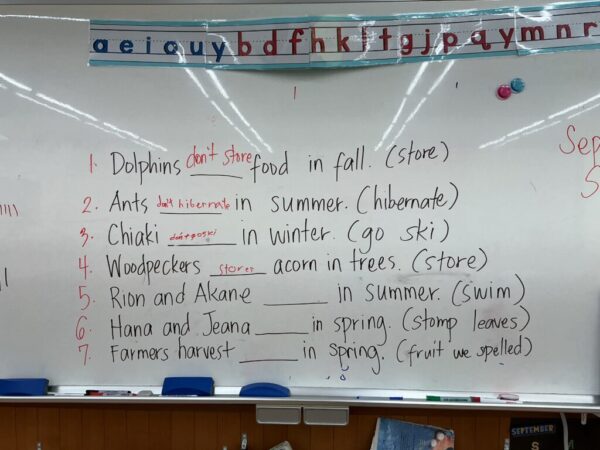 a e i o u y b d f h k l t g j p q y m n r
1. Dolphins don't store food in fall. (store)
Sep
S
2. Ants don't hibernate in summer. (hibernate)
3. Chiaki don't go ski in winter. (go ski)
4. Woodpeckers stores acorn in trees. (store)
5. Rion and Akane ______ in summer. (swim)
6. Hana and Jeana ______ in spring. (stomp leaves)
7. Farmers harvest ______ in spring. (fruit we spelled)
SEPTEMBER
S